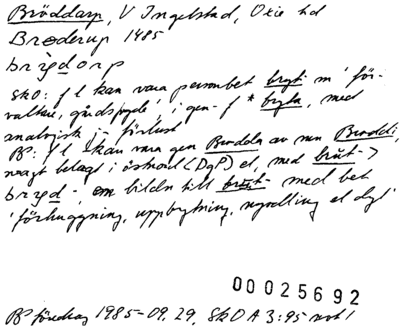 Bröddarp, V Ingelstad, Oxie hd
Broderup 1485
brydorp
SkO: f l kan vara personbet bryti m 'för-
valtare, gårdsfogde', i gen- f * bryta, med
analogisk j- förlust
BP: f l kan vara gen Brudda av mn Bruddi,
svagt belagt i östnord (DgP) el, med brŭt- >
bryd-, en bildn till brŭt- med bet
'förhuggning, uppbrytning, nyodling el dyl'
00025692
BP föredrag 1985-09.29, SkO A 3:95 not 1